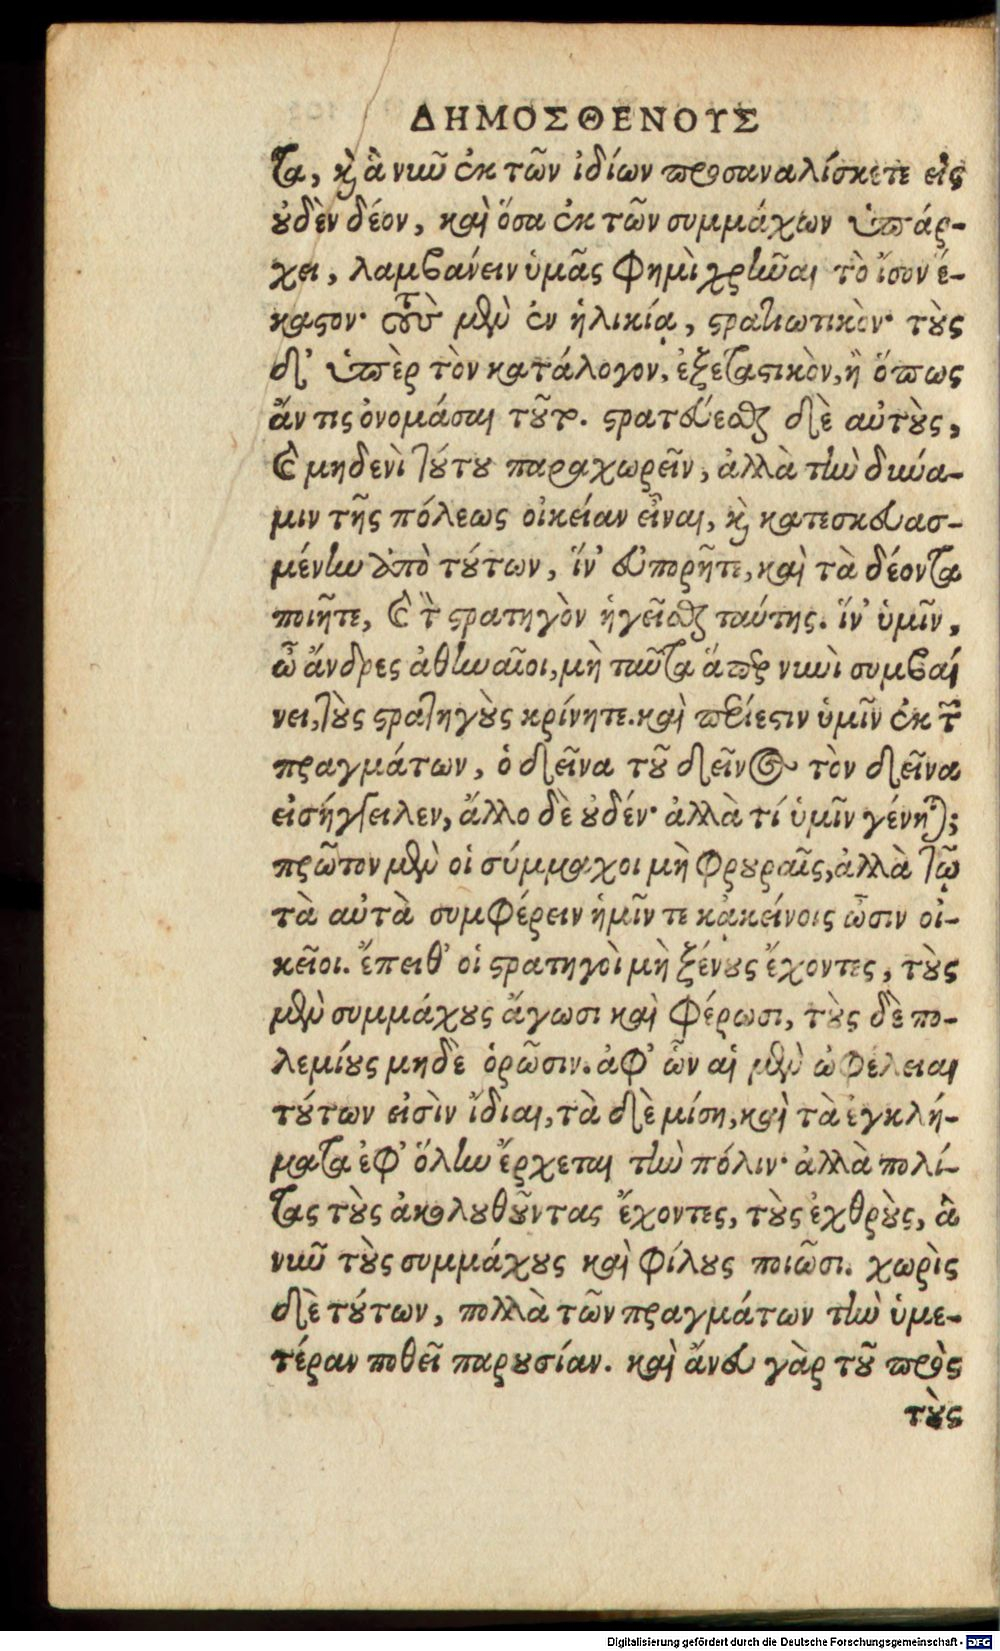 ΔΗΜΟΣΘΕΝΟΥΣ
τα, κὶ ἃ νῦν ἐκ τῶν ἰδίων προσαναλίσκετε εἰς
οὐδὲν δέον, καὶ ὅσα ἐκ τῶν συμμάχων ὑπάρ-
χει, λαμβάνειν ὑμᾶς φημὶ χρῆναι τὸ ἴσον ἕ-
καστον· τοὺς μὲν ἐν ἡλικίᾳ, στρατιωτικὸν· τοὺς
δ' ὑπὲρ τὸν κατάλογον, ἐξεταστικὸν, ἢ ὅπως
ἄν τις ὀνομάσαι τοῦτο. στρατεύεσθαι δὲ αὐτοὺς,
καὶ μηδενὶ τούτου παραχωρεῖν, ἀλλὰ τὴν δύνα-
μιν τῆς πόλεως οἰκείαν εἶναι, καὶ κατεσκευασ-
μένην ἀπὸ τούτων, ἵν' εὐπορῆτε, καὶ τὰ δέοντα
ποιῆτε, καὶ τὸν στρατηγὸν ἡγεῖσθαι ταύτης. ἵν' ὑμῖν,
ὦ ἄνδρες ἀθηναῖοι, μὴ ταῦτα ἅπερ νυνὶ συμβαί
νει, τοὺς στρατηγοὺς κρίνητε. καὶ περίεστιν ὑμῖν ἐκ τῶν
πραγμάτων, ὁ δεῖνα τοῦ δεῖνος τὸν δεῖνα
εἰσήγγειλεν, ἄλλο δὲ οὐδέν· ἀλλὰ τί ὑμῖν γένηται;
πρῶτον μὲν οἱ σύμμαχοι μὴ φρουραῖς, ἀλλὰ τῷ
τὰ αὐτὰ συμφέρειν ἡμῖν τε κᾀκείνοις ὦσιν οἰ-
κεῖοι. ἔπειθ' οἱ στρατηγοὶ μὴ ξένους ἔχοντες, τοὺς
μὲν συμμάχους ἄγωσι καὶ φέρωσι, τοὺς δὲ πο-
λεμίους μηδὲ ὁρῶσιν. ἀφ' ὧν αἱ μὲν ὠφέλειαι
τούτων εἰσὶν ἴδιαι, τὰ δὲ μίση, καὶ τὰ ἐγκλή-
ματα ἐφ' ὅλην ἔρχεται τὴν πόλιν· ἀλλὰ πολί-
τας τοὺς ἀκολουθοῦντας ἔχοντες, τοὺς ἐχθροὺς, ἃ
νῦν τοὺς συμμάχους καὶ φίλους ποιῶσι. χωρὶς
δὲ τούτων, πολλὰ τῶν πραγμάτων τὴν ὑμε-
τέραν ποθεῖ παρουσίαν. καὶ ἄνευ γὰρ τοῦ πρὸς
τοὺς
Digitalisierung gefördert durch die Deutsche Forschungsgemeinschaft - DFG